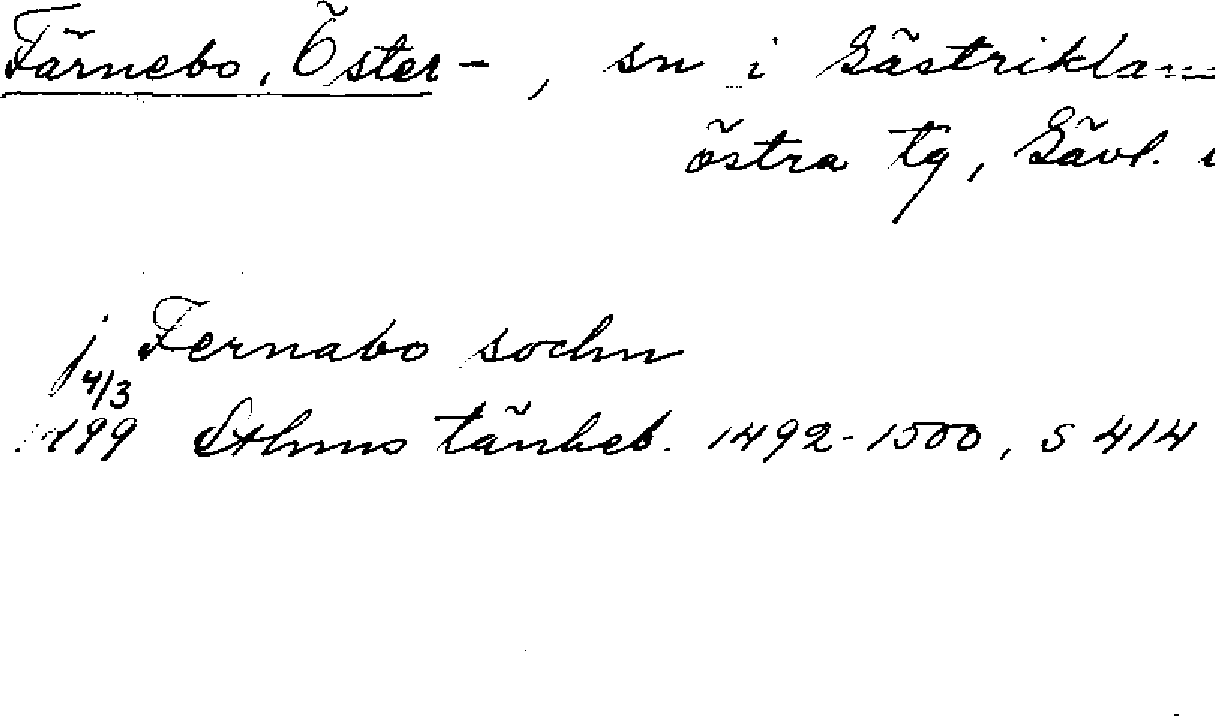 Färnebo, Öster-, sn i Gästrikland
östra tg, Gävl.
j Fernabo sochn
4/3
1499 Sthms tänkeb. 1492-1500, s 414